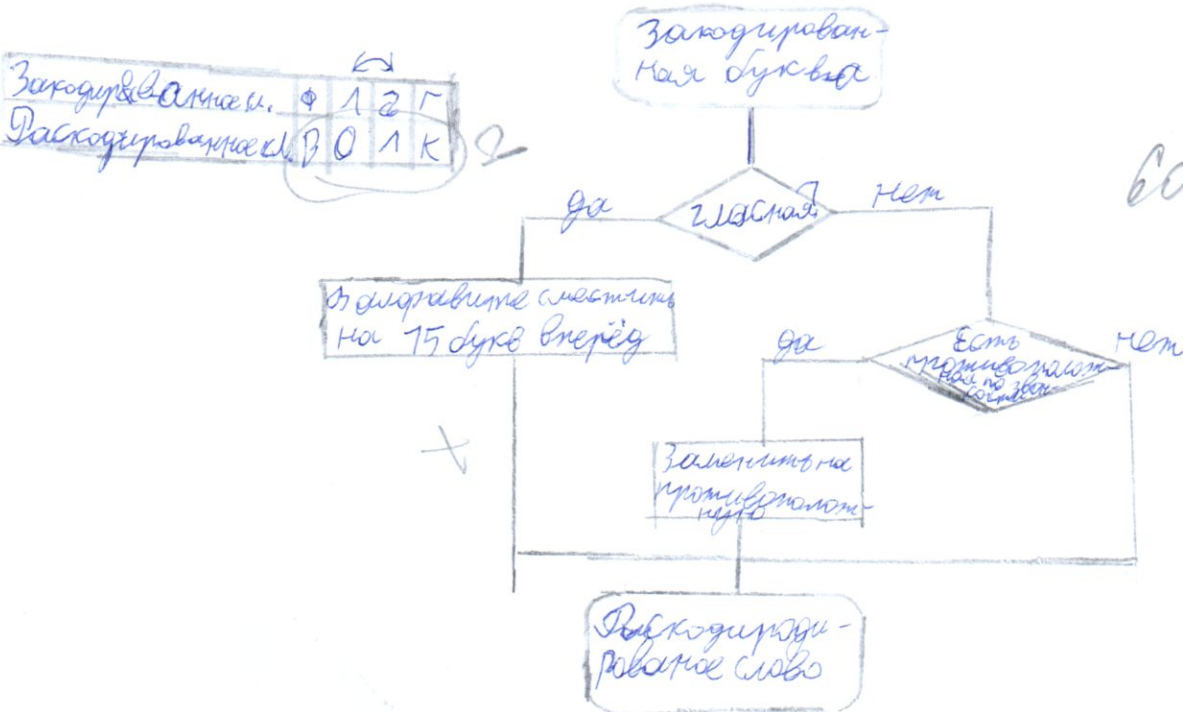 Закодированное сл. Ф 1 2 Г
Раскодированное сл. В О Л К
2
Закодирован-
ная буква
60
гласная?
да
нет
сместить
на 15 букв вперёд
да
Есть
противополож-
ная по звон-
кости
нет
Заменить на
противополож-
ную
Раскодироди-
рованое слово